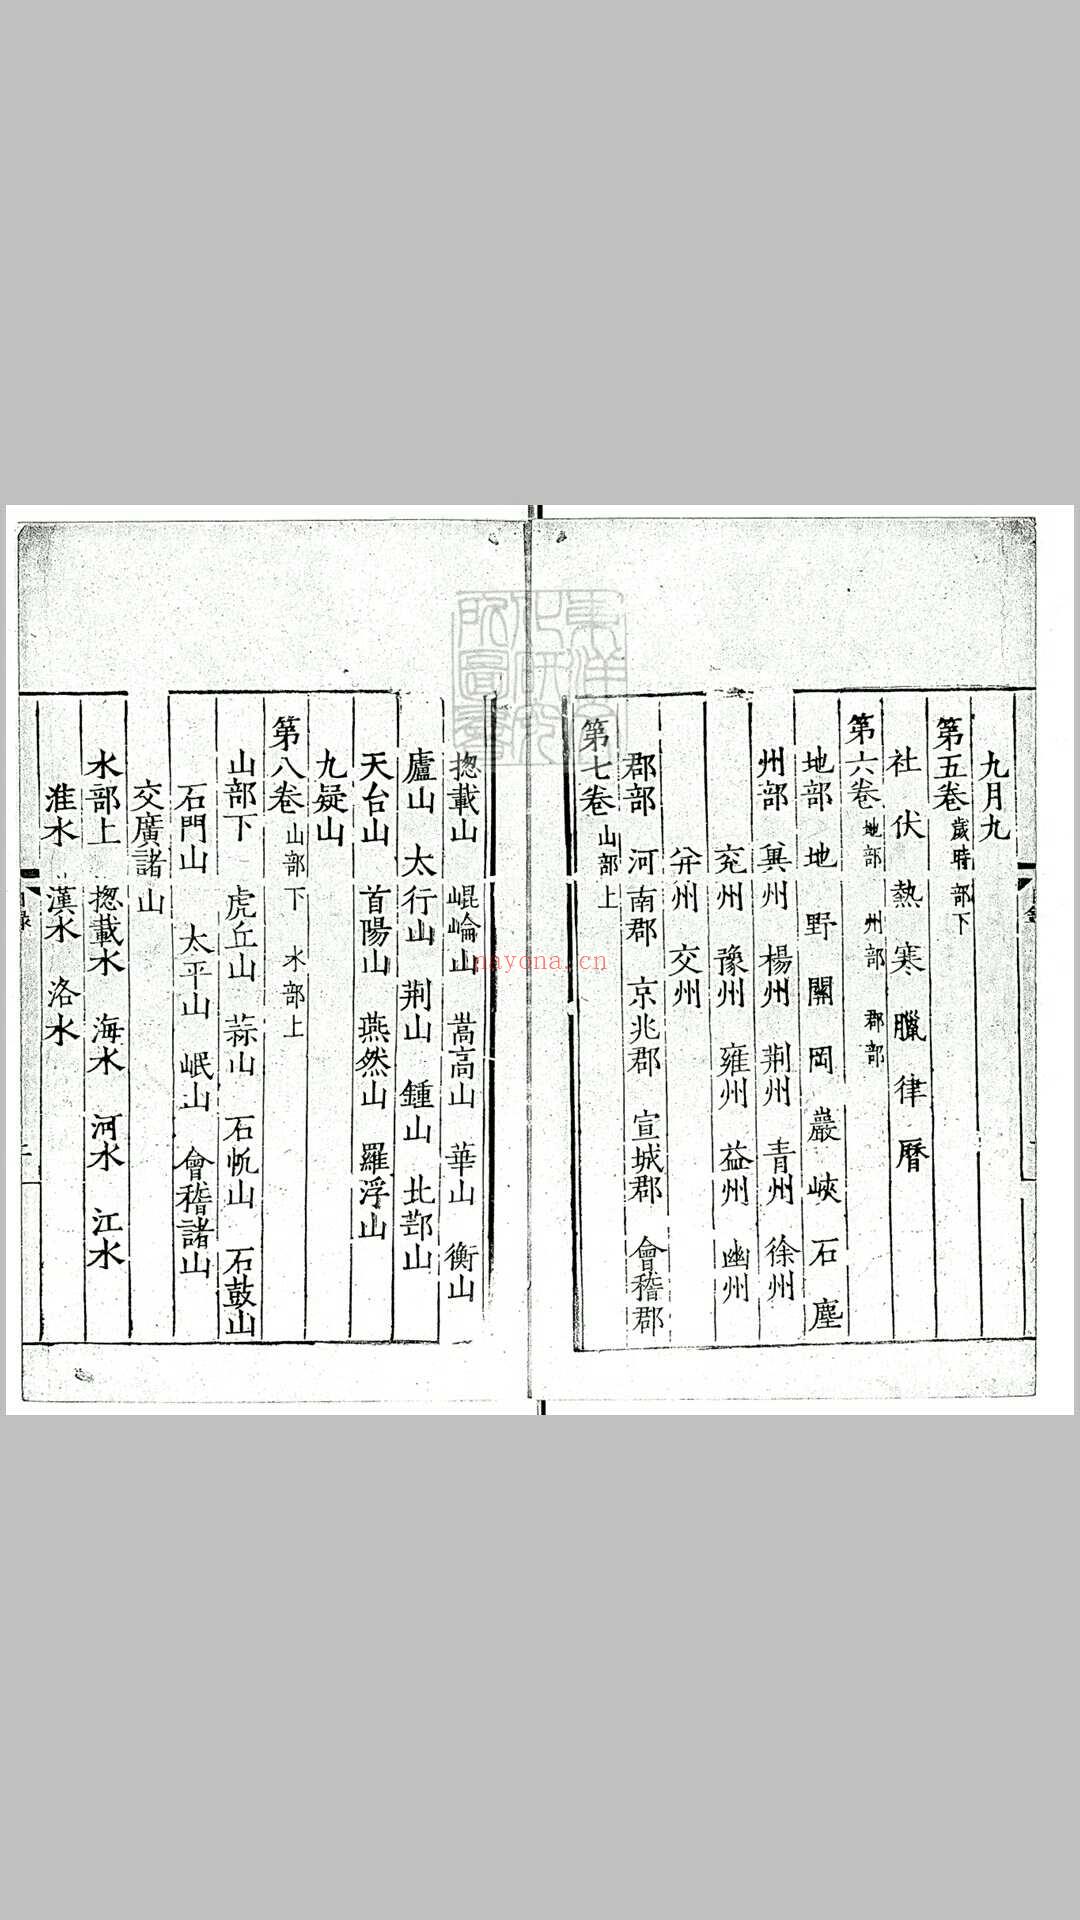 九月九
第五卷 歲時部下
社 伏 熱 寒 臘 律 曆
第六卷 地部 州部 郡部
地部 地 野 關 岡 巖 峽 石 塵
州部 兾州 楊州 荆州 青州 徐州
兖州 豫州 雍州 益州 幽州
并州 交州
郡部 河南郡 京兆郡 宣城郡 會稽郡
第七卷 山部上
揔載山 崐崘山 嵩高山 華山 衡山
廬山 太行山 荆山 鍾山 北邙山
天台山 首陽山 燕然山 羅浮山
九疑山
第八卷 山部下 水部上
山部下 虎丘山 蒜山 石帆山 石鼓山
石門山 太平山 岷山 會稽諸山
交廣諸山
水部上 揔載水 海水 河水 江水
淮水 漢水 洛水
目錄
nayona.cn